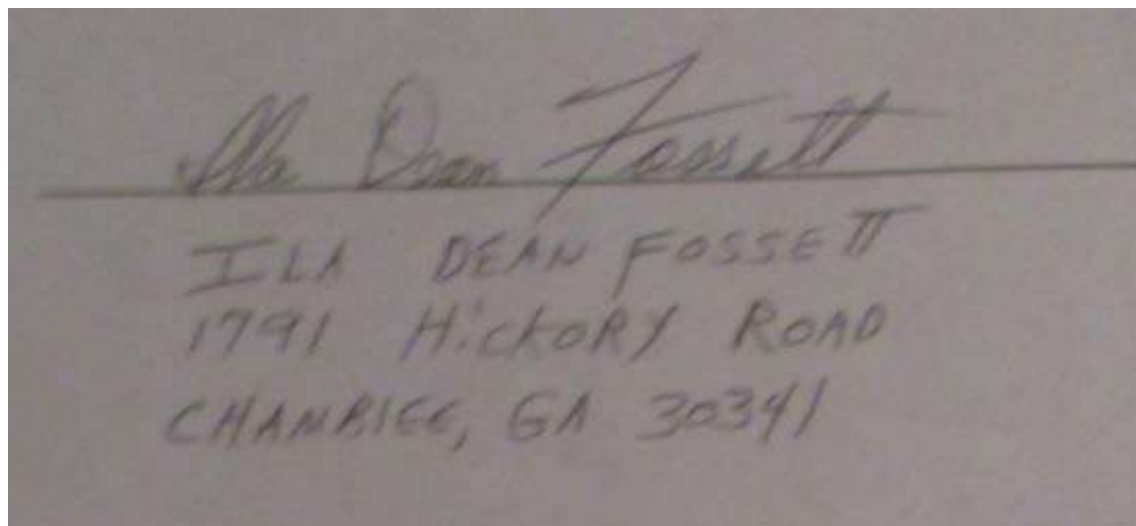 Ila Dean Fossett
ILA DEAN FOSSETT
1791 HickORY ROAD
CHAMBLEE, GA 30341